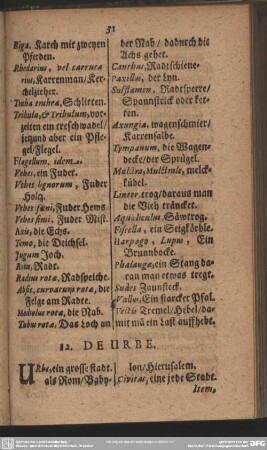 31
Biga, Karch mit zweyen
Pferden.
Rhedarius, vel carruca
rius, Karrenman/Ker-
chelzieher.
Traha trahea, Schlitten.
Tribula, & Tribulum, vor-
zeiten ein treschwadel/
jetzund aber ein Pfle-
gel/Flegel.
Flagellum, idem.
Vehes, ein Fuder.
Vehes lignorum, Fuder
Holtz.
Vehes fœni, Fuder Hews
Vehes fimi, Fuder Mist.
Axis, die Echs.
Temo, die Deichsel.
Jugum Joch.
Rota, Radt.
Radius rotæ, Radspeiche.
Absis, curvatura rotæ, die
Felge am Radte.
Modiolus rotæ, die Nab.
Tubus rotæ, Das Loch an
der Nab/ dadurch die
Achs gehet.
Canthus, Radtschiene.
Paxillus, der Lyn.
Suflamen, Radtsperre/
Spannstrick oder ket-
ten.
Axungia, wagenschmier/
Karrensalbe.
Tympanum, die Wagen-
decke/der Sprügel.
Mulctra, Mulctrale, melck-
kübel.
Linter, trog/daraus man
die Vieh träncket.
Aqualiculus, Säwtrog.
Fiscella, ein Seigkörble.
Harpago, Lupus, Ein
Brunnhocke.
Phalanga, ein Stang da-
ran man etwas tregt.
Sudes Zaunsteck.
Vallus, Ein starcker Pfal.
Vectis Tremel/Hebel/da-
mit mā ein Last auffhebt.
12. DE URBE.
URbs, ein grosse stadt.
als Rom/Baby-
lon/Hierusalem.
Civitas, eine jede Stadt.
Item,